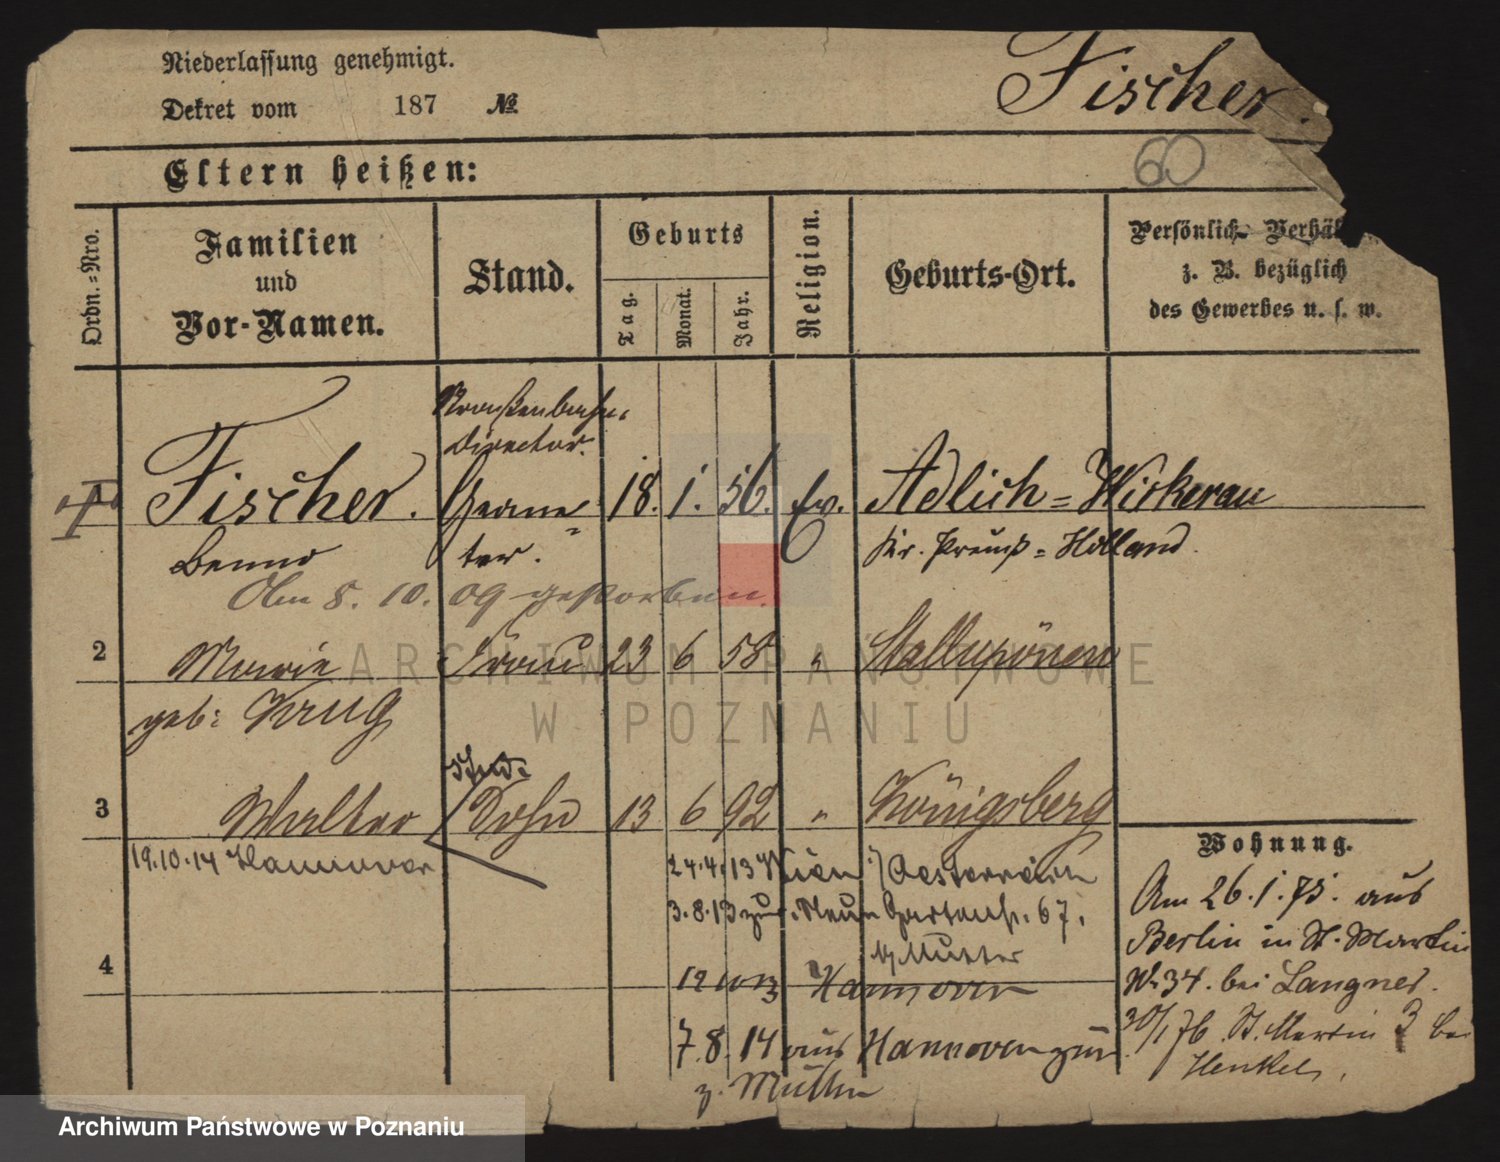 Niederlassung genehmigt.
Dekret vom 187 №
Fischer.
Eltern heißen:
60
Ordn.-Nro.
Familien
und
Vor-Namen.
Stand.
Geburts
Tag.
Monat.
Jahr.
Religion.
Geburts-Ort.
Persönlich Verhäl
z. B. bezüglich
des Gewerbes u. s. w.
Straßenbahn-
director.
1 Fischer. Geome- 18. 1. 56. Ev. Adlich=Wickerau
Benno ter. Kr. Preuß=Holland.
Am 8. 10. 09 gestorben.
2 Marie Frau 23 6 58 " Stallupönen
geb: Krug
Stud.
3 Walter Sohn 13 6 92 " Königsberg
19.10.14 Hannover
24.4.13 Wien Oesterreich
3.8.13 zur. Neue Gartenstr. 67.
z/ Mutter
Hannover
7.8.14 aus Hannover zur.
z. Mutter
4
Wohnung.
Am 26.1.75. aus
Berlin in St. Martin
No 34. bei Langner.
30/1 76. St. Martin 3 bei
Henkel.
ARCHIWUM PAŃSTWOWE
W POZNANIU
Archiwum Państwowe w Poznaniu